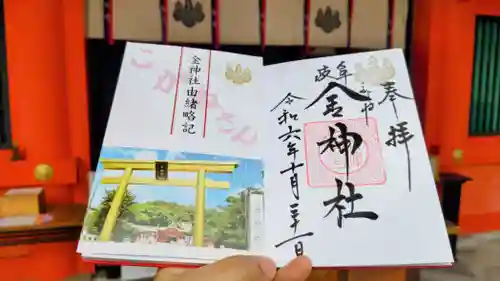 こがねさん
金神社由緒略記
奉拝
岐阜
金神社
令和六年十月三十一日